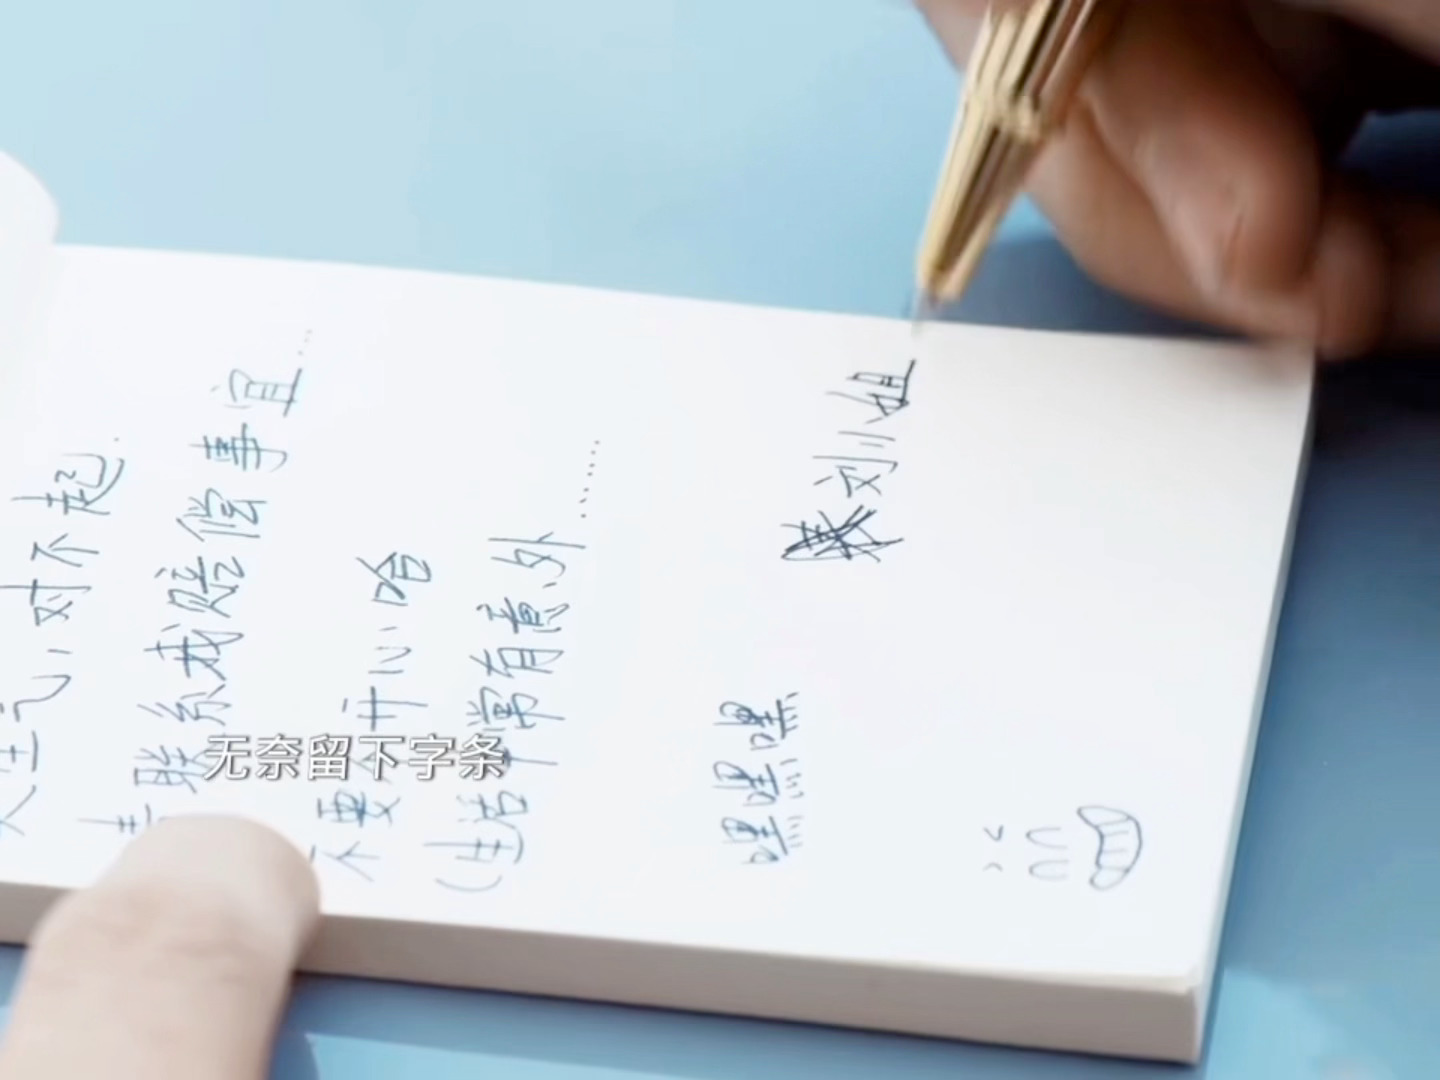 生气，对不起.
联系我赔偿事宜……
不要介开心哈
(生活常有意外……
嘿嘿嘿
刘姐
无奈留下字条